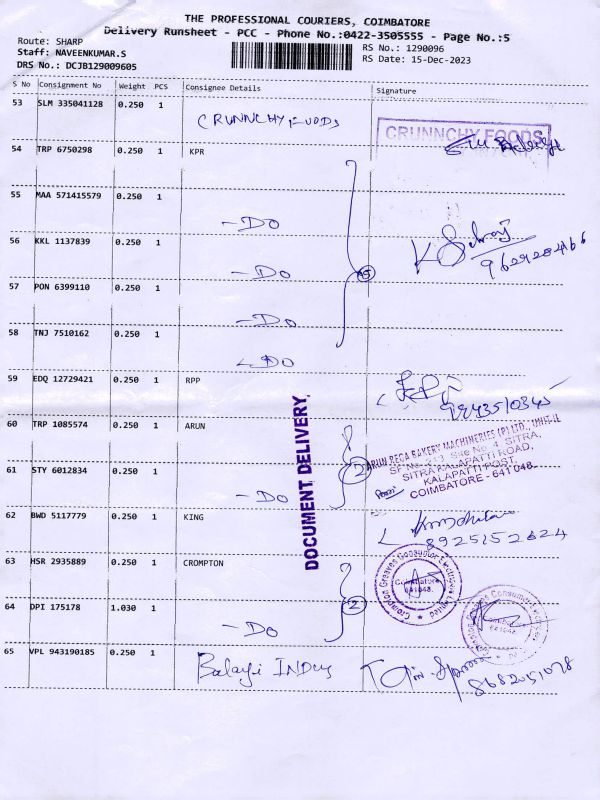 THE PROFESSIONAL COURIERS, COIMBATORE
Delivery Runsheet - PCC - Phone No.:0422-3505555 - Page No.:5
Route: SHARP
RS No.: 1290096
Staff: NAVEENKUMAR.S
RS Date: 15-Dec-2023
DRS No.: DCJB129009605
S No Consignment No Weight PCS Consignee Details Signature
53 SLM 335041128 0.250 1 CRUNNCHY FOODS
CRUNNCHY FOODS
54 TRP 6750298 0.250 1 KPR
55 MAA 571415579 0.250 1
- DO
56 KKL 1137839 0.250 1
- DO
9629284166
57 PON 6399110 0.250 1
- DO
58 TNJ 7510162 0.250 1
- DO
59 EDQ 12729421 0.250 1 RPP
9843510345
60 TRP 1085574 0.250 1 ARUN
ARUN REGA BAKERY MACHINERIES (P) LTD., UNIT-II
SITRA KALAPATTI ROAD,
KALAPATTI POST,
COIMBATORE - 641 048.
61 STY 6012834 0.250 1
2
- DO
DOCUMENT DELIVERY
62 BWD 5117779 0.250 1 KING
8925152624
63 HSR 2935889 0.250 1 CROMPTON
Crompton Greaves Consumer Electricals Limited
Coimbatore
641048.
64 DPI 175178 1.030 1
2
- DO
641048.
65 VPL 943190185 0.250 1 Balaji INDUS
8682051078